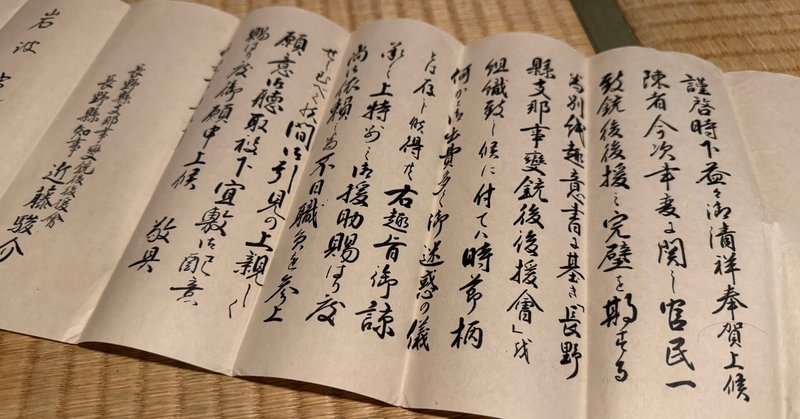 謹啓時下益々御清祥奉賀上候
陳者今次事変ニ関し官民一
致銃後後援之完璧を期する
為別紙趣意書ニ基き「長野
縣支那事變銃後後援會」を
組織致し候に付ては時節柄
何かと御出費多く御迷惑の儀
とは存し候得共右趣旨御諒
承之上特別之御援助賜り度
尚御依頼之為不日職員を参上
せしむべく候間御引見の上親しく
願意御聴取被下宜敷御配意
賜り度御願申上候 敬具
長野縣支那事變銃後後援會
長野縣知事 近藤駿介
岩波